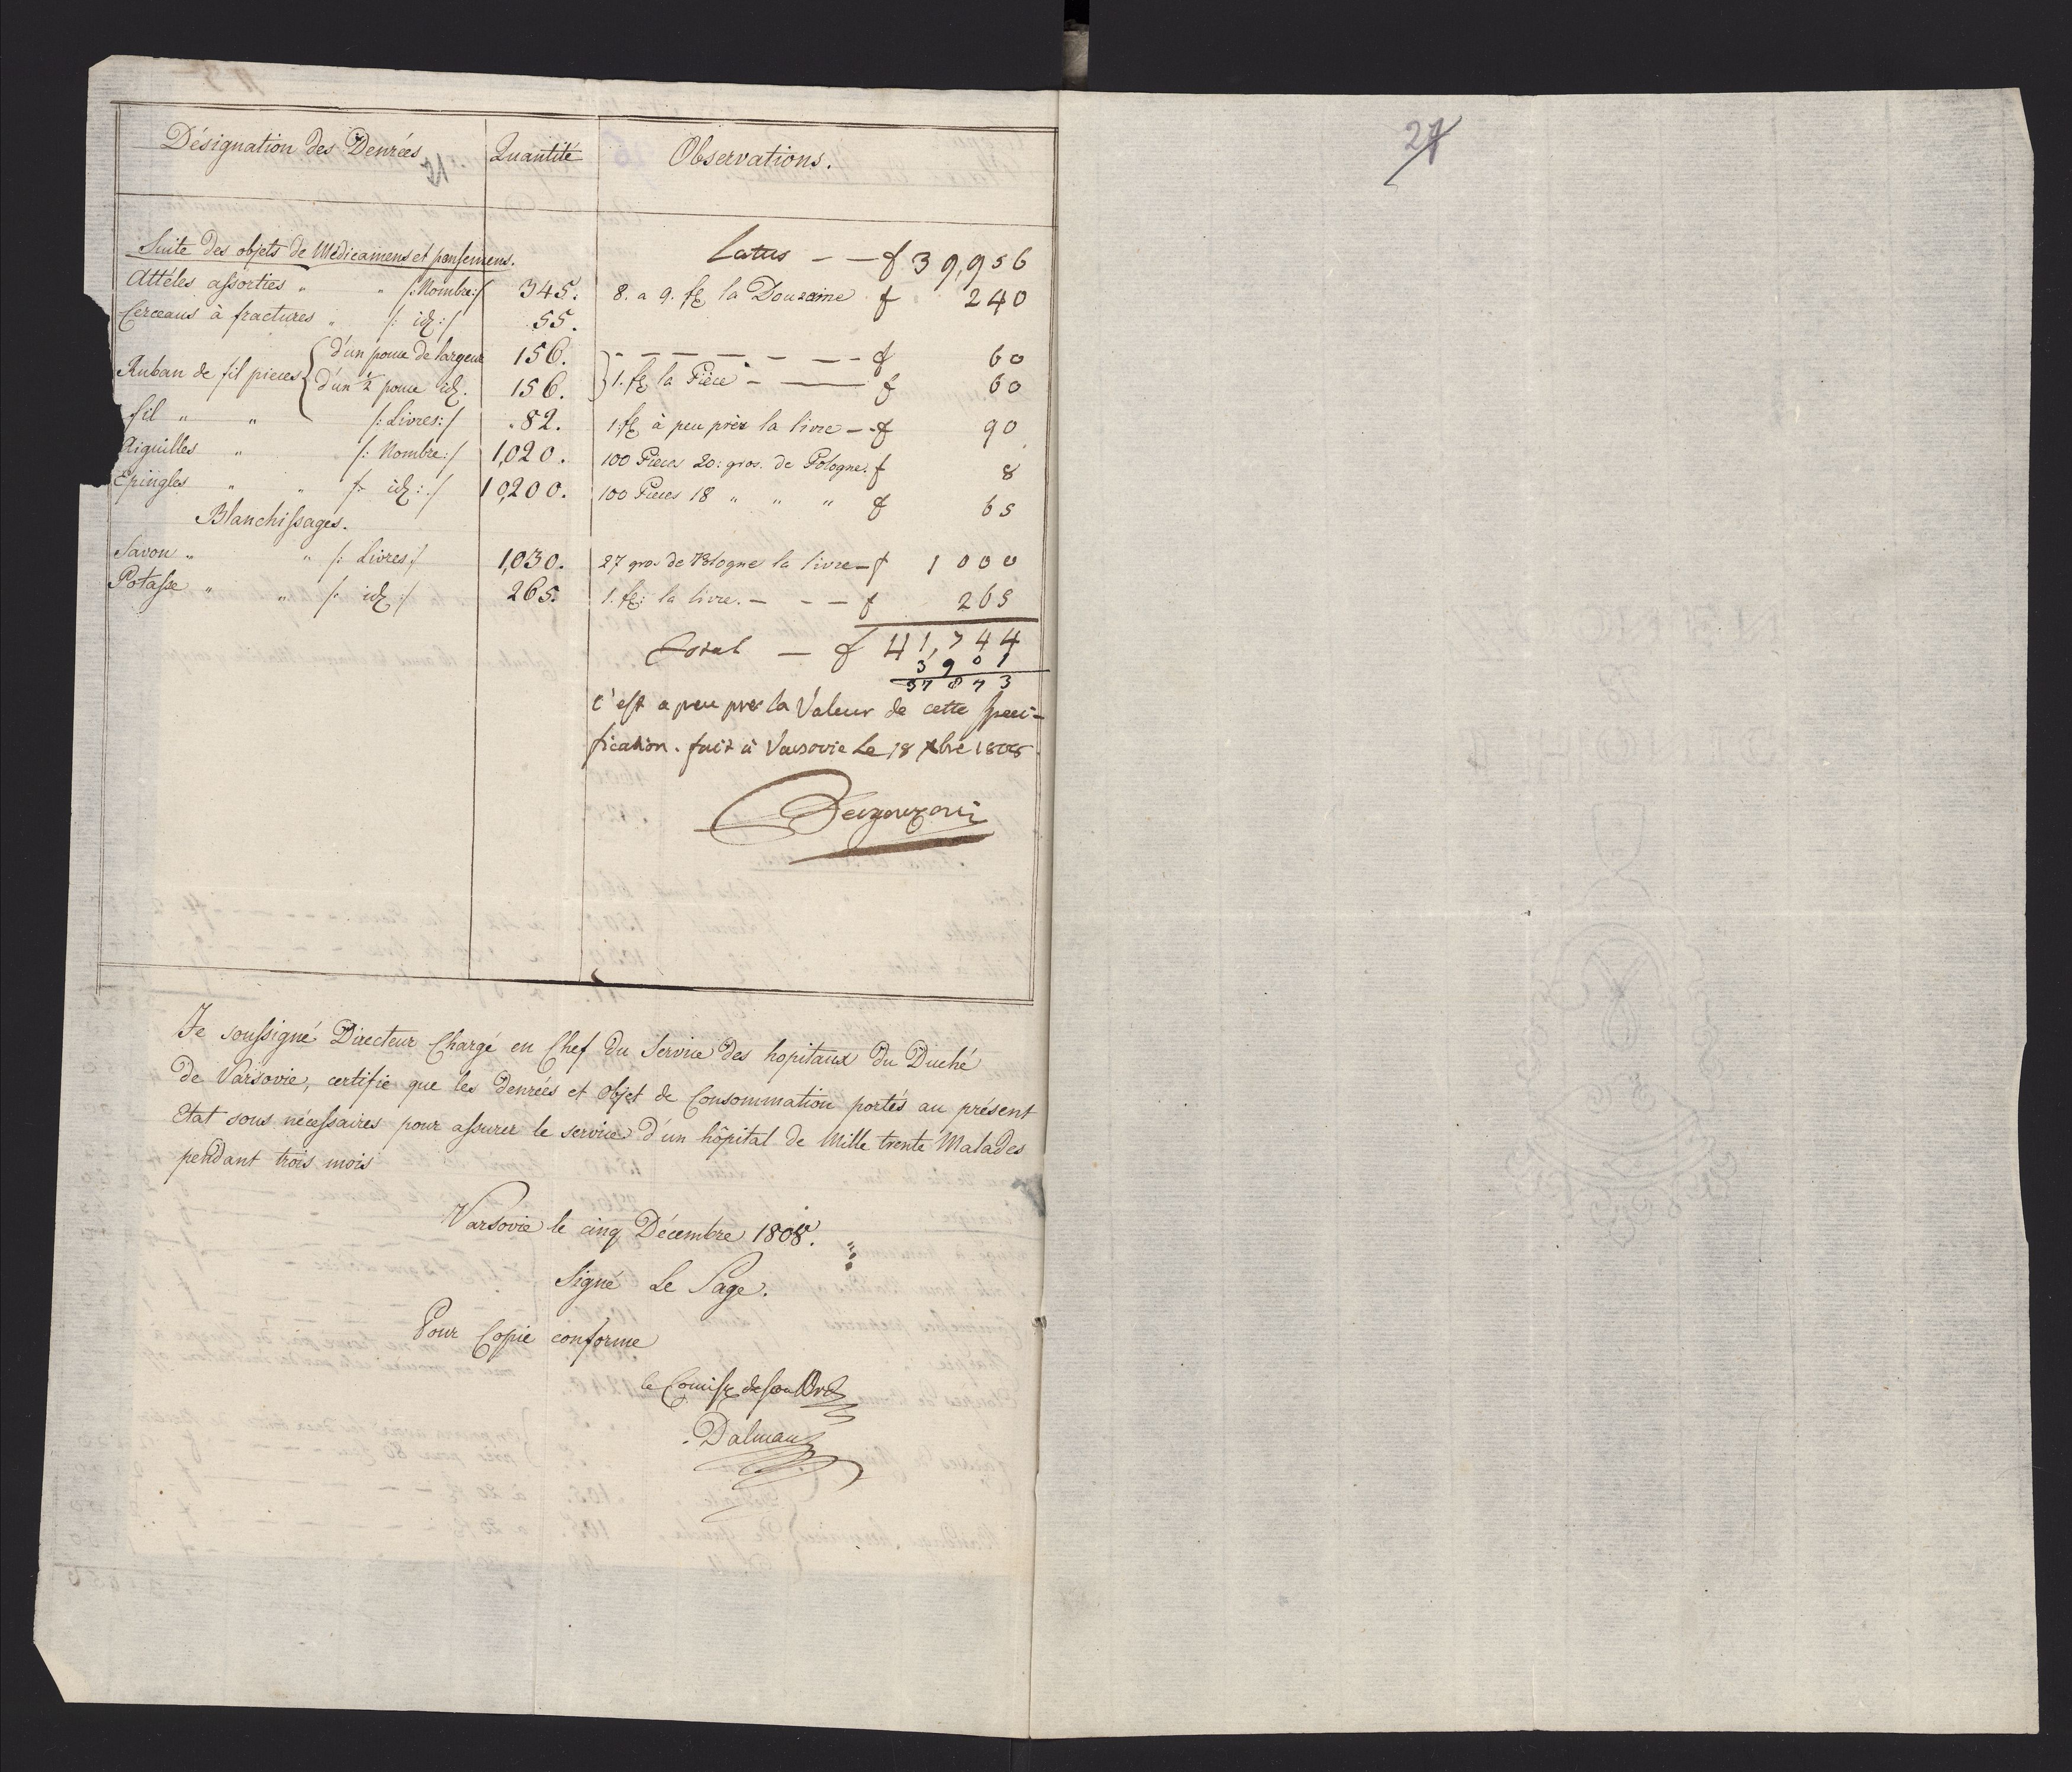 27
Désignation des Denrées
21
Quantité
Observations.
Suite des objets de Médicamens et pansemens.
Latus - - f 39,956
Attéles assorties " " /: Nombre :/ 345. 8. a 9. fl. la Douzaine f 240
Cerceaus à fractures " /: id :/ 55.
Ruban de fil pieces { d'un pouce de largeur 156. } - - - - - - - f 60
d'un ½ pouce id. 156. } 1. fl. la Pièce - - f 60
fil " " /: Livres :/ 82. 1. fl. à peu près la livre - - f 90
Aiguilles " /: Nombre :/ 1,020. 100 Pièces 20: gros. de Pologne. f 8
Epingles " " /: id :/ 10,200. 100 Pieces 18 " " " f 65
Blanchissages.
Savon " " /: Livres :/ 1,030. 27 gros de Pologne la livre - f 1000
Potasse " " /: id :/ 265. 1. fl: la livre. - - - f 265
Total - f 41,744
3901
37873
C'est a peu pres la Valeur de cette Speci-
fication. fait à Varsovie le 18 Xbre 1808
Je soussigné Directeur Chargé en Chef du Service des hopitaux du Duché
de Varsovie, certifie que les denrées et Objet de Consommation portés au présent
Etat sont nécessaires pour assurer le service d'un hôpital de Mille trente Malades
pendant trois mois
Varsovie le cinq Décembre 1808.
Signé Le Sage.
Pour Copie conforme
Dalmau